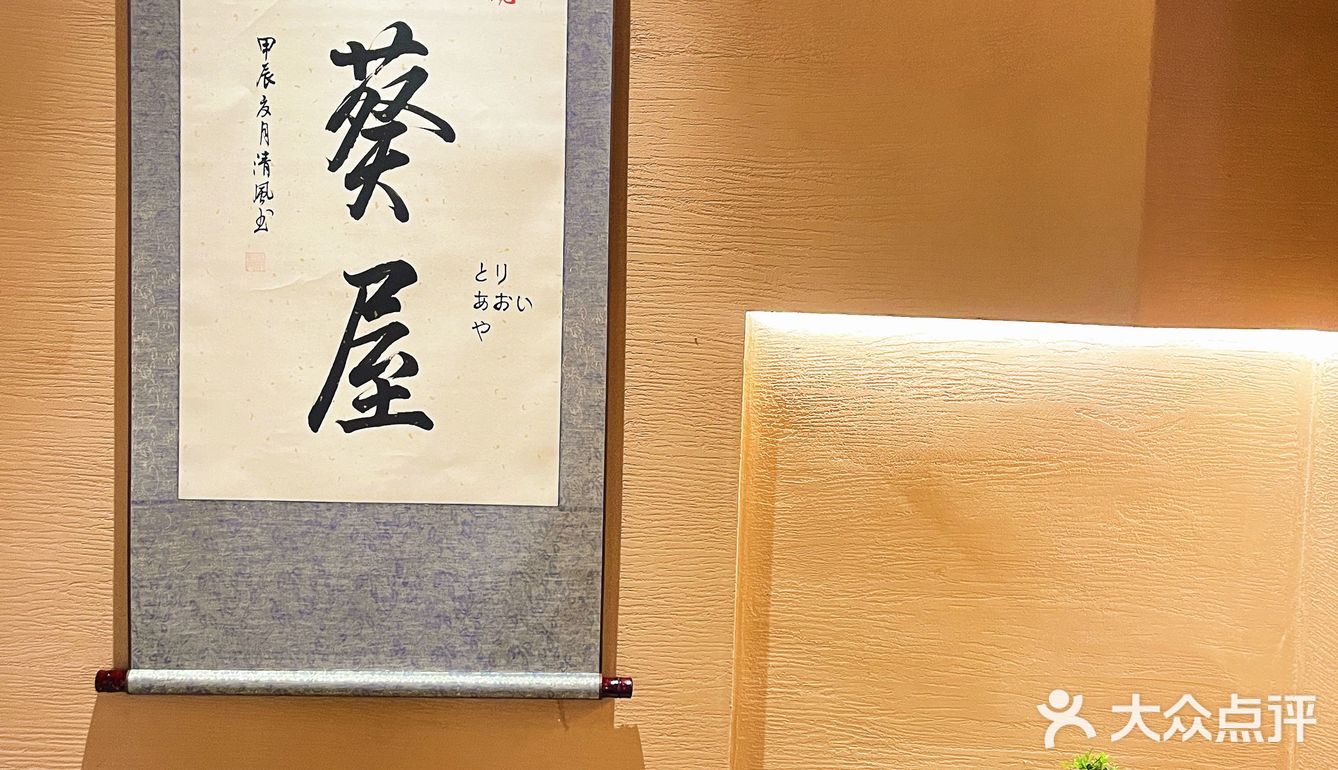 葵屋
い
りお
とあや
甲辰夏月清風书
大众点评